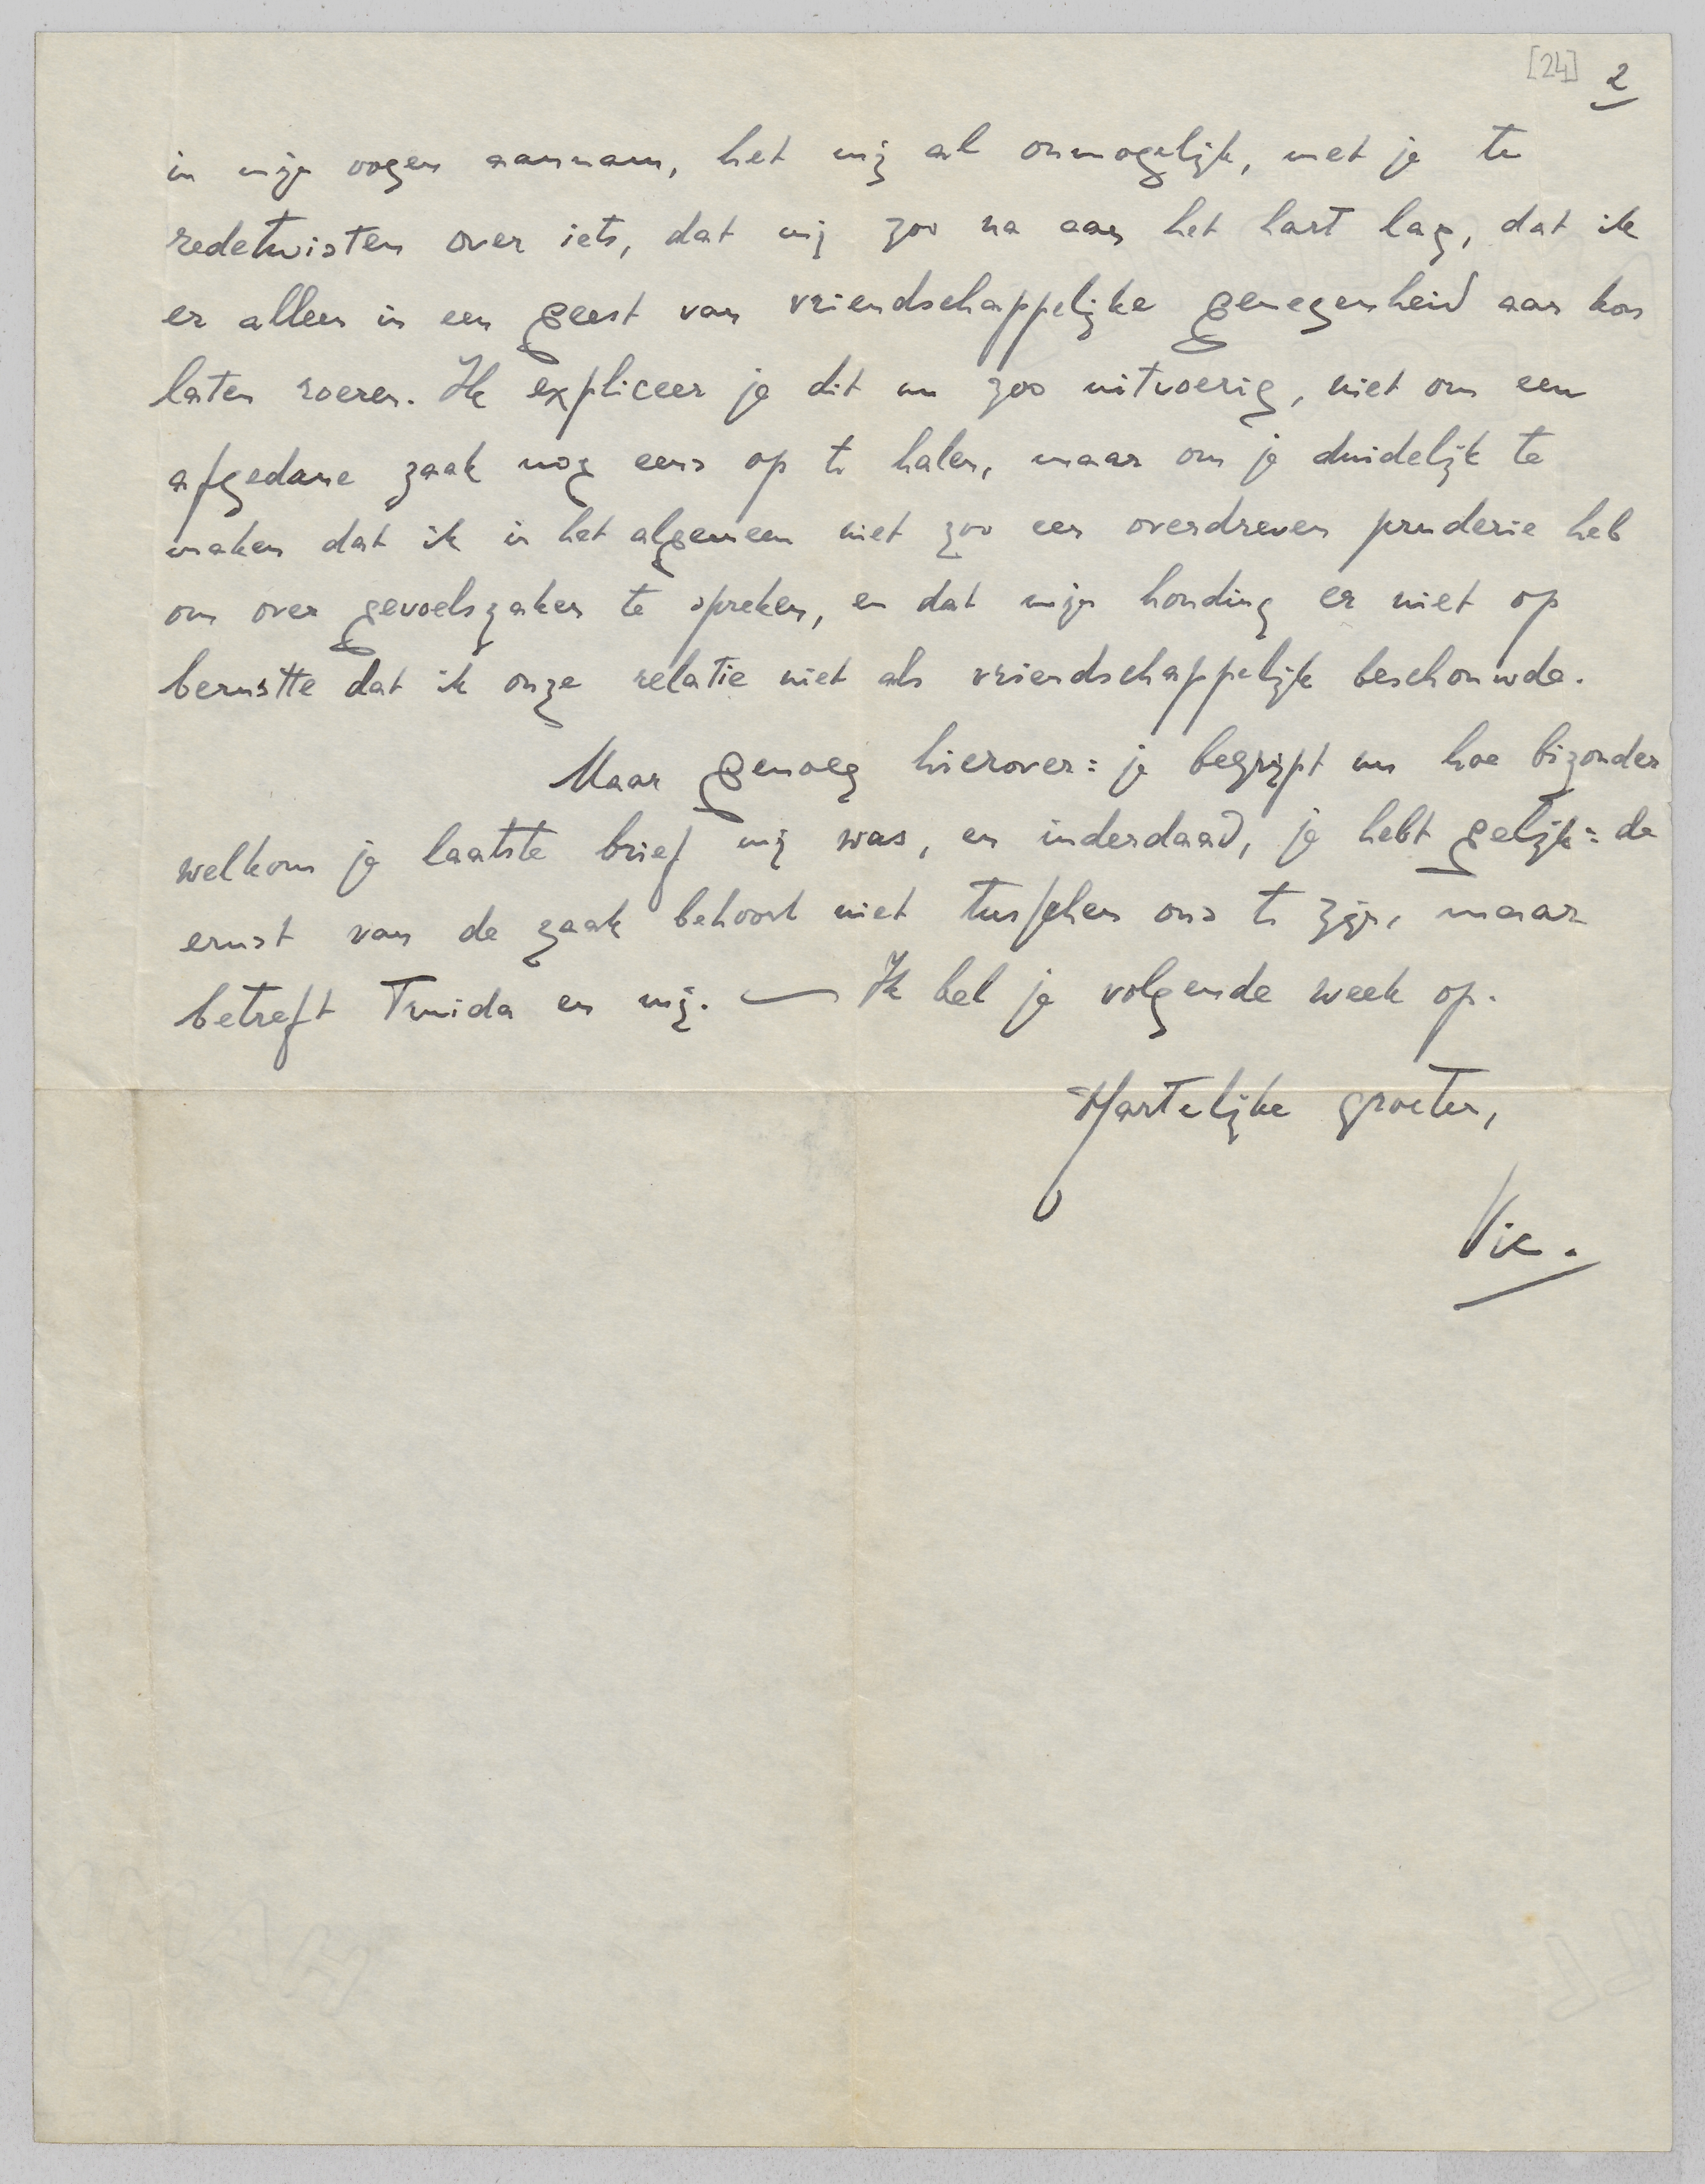 [24] 2
in mijn oogen aannam, het mij al onmogelijk, met je te
redetwisten over iets, dat mij zoo na aan het hart lag, dat ik
er alleen in een geest van vriendschappelijke genegenheid aan kon
laten roeren. Ik expliceer je dit nu zoo uitvoerig, niet om een
afgedane zaak nog eens op te halen, maar om je duidelijk te
maken dat ik in het algemeen niet zoo een overdreven pruderie heb
om over gevoelszaken te spreken, en dat mijn houding er niet op
berustte dat ik onze relatie niet als vriendschappelijk beschouwde.
Maar genoeg hierover: je begrijpt nu hoe bizonder
welkom je laatste brief mij was, en inderdaad, je hebt gelijk: de
ernst van de zaak behoort niet tusschen ons te zijn, maar
betreft Truida en mij. — Ik bel je volgende week op.
Hartelijke groeten,
Vic.